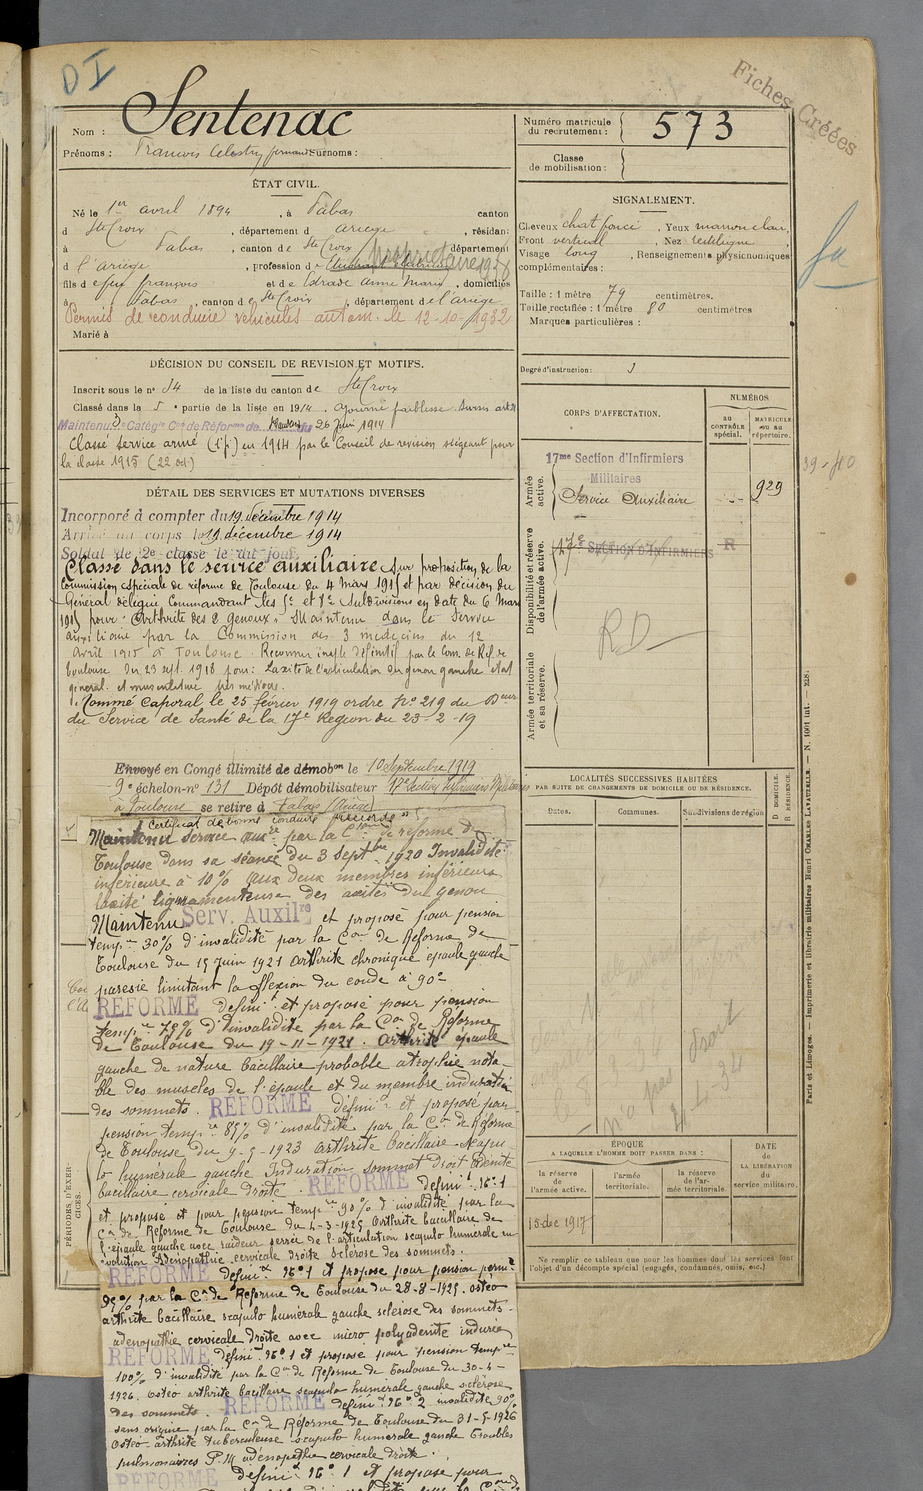 DI
Fiches Créées
Nom : Sentenac
Prénoms : François Célestin fernand Surnoms :
Numéro matricule du recrutement : 573
Classe de mobilisation :
ÉTAT CIVIL.
Né le 1er avril 1894, à Fabas canton
d Ste Croix, département d ariège, résidant
à Fabas, canton de Ste Croix département
d l'ariège, profession de propriétaire 1928
fils d e feu françois et de Estrade anne Marie, domiciliés
à Fabas, canton de Ste Croix, département de l'ariège.
Permis de conduire véhicules autom. le 12-10-1932
Marié à
SIGNALEMENT.
Cheveux chat foncé, Yeux marron clair,
Front vertical, Nez rectiligne,
Visage long, Renseignements physionomiques
complémentaires :
Taille : 1 mètre 79 centimètres.
Taille rectifiée : 1 mètre 80 centimètres
Marques particulières :
Degré d'instruction : 3
DÉCISION DU CONSEIL DE REVISION ET MOTIFS.
Inscrit sous le n° 14 de la liste du canton de Ste Croix
Classé dans la 5e partie de la liste en 1914. ajourné faiblesse
26 Juin 1914
Classé service armé (1.p) en 1914 par le Conseil de revision siégeant pour
la classe 1915 (22 oct)
DÉTAIL DES SERVICES ET MUTATIONS DIVERSES
Incorporé à compter du 19 décembre 1914
Arrivé au corps le 19 décembre 1914
Soldat de 2e classe le dit jour
Classé dans le service auxiliaire sur proposition de la
Commission spéciale de réforme de Toulouse du 4 mars 1915 et par décision du
Général délégué Commandant les 5e et 8e Subdivisions en date du 6 Mars
1915 pour : "Arthrite des 2 genoux". Maintenu dans le service
auxiliaire par la Commission des 3 médecins du 12
avril 1915 à Toulouse. Reconnu inapte définitif par la Com. de Réf. de
Toulouse du 23 sept. 1918 pour : Laxité de l'articulation du genou gauche état
général et musculature très médiocre.
Nommé Caporal le 25 février 1919 ordre No 219 du Dteur
du Service de Santé de la 17e Région du 23-2-19
Envoyé en Congé illimité de démobon le 10 Septembre 1919
9e échelon - n° 131 Dépôt démobilisateur 17e Section Infirmiers Militaires
à Toulouse se retire à Fabas (Ariège)
Certificat de bonne conduite "accordé"
Maintenu service auxre par la Cion de réforme de
Toulouse dans sa séance du 3 Septbre 1920 Invalidité
inférieure à 10% aux deux membres inférieurs
laxité ligamenteuse des du genou
Maintenu Serv. Auxilre et proposé pour pension
temp.re 30% d'invalidité par la Con de Réforme de
Toulouse du 15 Juin 1921 arthrite chronique épaule gauche
parésie limitant la flexion du coude à 90°
RÉFORMÉ définit et proposé pour pension
temp.re 75% d'invalidité par la Con de Réforme
de Toulouse du 19-11-1921. arthrite épaule
gauche de nature bacillaire probable atrophie nota-
ble des muscles de l'épaule et du membre induration
des sommets. RÉFORMÉ définit et proposé pour
pension temp.re 85% d'invalidité par la Con de Réforme
de Toulouse du 9-5-1923 arthrite bacillaire scapu-
lo humérale gauche Induration sommet droit adénite
bacillaire cervicale droite. RÉFORMÉ définit n°1
et proposé et pour pension temp.re 90% d'invalidité par la
Con de Réforme de Toulouse du 4-3-1925 arthrite bacillaire de
l'épaule gauche avec raideur serrée de l'articulation scapulo humérale en
évolution adénopathie cervicale droite sclérose des sommets.
RÉFORMÉ définit n°1 et proposé pour pension perm.te
95% par la Con de Réforme de Toulouse du 28-8-1925. ostéo
arthrite bacillaire scapulo humérale gauche sclérose des sommets -
adénopathie cervicale droite avec micro polyadénite indurée
RÉFORMÉ définit n°1 et proposé pour pension temp.re
100% d'invalidité par la Con de Réforme de Toulouse du 30-4-
1926. Ostéo arthrite bacillaire scapulo humérale gauche sclérose
des sommets. RÉFORMÉ définit n°2 invalidité 90%
sans origine par la Con de Réforme de Toulouse du 31-5-1926
Ostéo-arthrite tuberculeuse scapulo humérale gauche Troubles
pulmonaires P.M adénopathie cervicale droite.
RÉFORMÉ définit n°1 et proposé pour
PÉRIODES D'EXERCICES.
CORPS D'AFFECTATION.
NUMÉROS
au CONTRÔLE spécial.
MATRICULE ou au répertoire.
Armée active.
17me Section d'Infirmiers
Militaires
Service Auxiliaire
929
Disponibilité et réserve de l'armée active.
17e SECTION D'INFIRMIERS R
RD
Armée territoriale et sa réserve.
LOCALITÉS SUCCESSIVES HABITÉES
PAR SUITE DE CHANGEMENTS DE DOMICILE OU DE RÉSIDENCE.
Dates.
Communes.
Subdivisions de région
D DOMICILE.
R RÉSIDENCE.
n'a pas droit
4-4-34
ÉPOQUE
A LAQUELLE L'HOMME DOIT PASSER DANS :
la réserve de l'armée active.
l'armée territoriale.
la réserve de l'armée territoriale.
DATE DE LA LIBÉRATION du service militaire.
15 dec 1917
Ne remplir ce tableau que pour les hommes dont les services font
l'objet d'un décompte spécial (engagés, condamnés, omis, etc.)
Paris et Limoges. — Imprimerie et librairie militaires Henri CHARLES-LAVAUZELLE. — N. 1001 int.